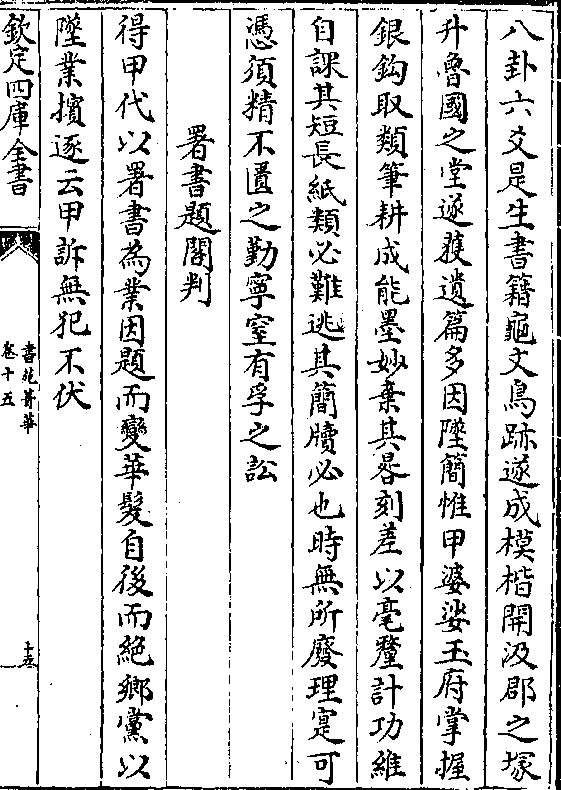 八卦六爻是生書籍龜文鳥跡遂成模楷開汲郡之塚
升魯國之堂遂獲遺篇多因墜簡惟甲婆娑玉府掌握
銀鈎取類筆耕成能墨妙棄其晷刻差以毫釐計功維
自課其短長紙類必難逃其簡牘必也時無所廢理寔可
憑須精不匱之勤寧窒有孚之訟
署書題閣判
得甲代以署書為業因題而變華髮自後而絶鄉黨以
墜業擯逐云甲訴無犯不伏
欽定四庫全書
書苑菁華
卷十五
十五